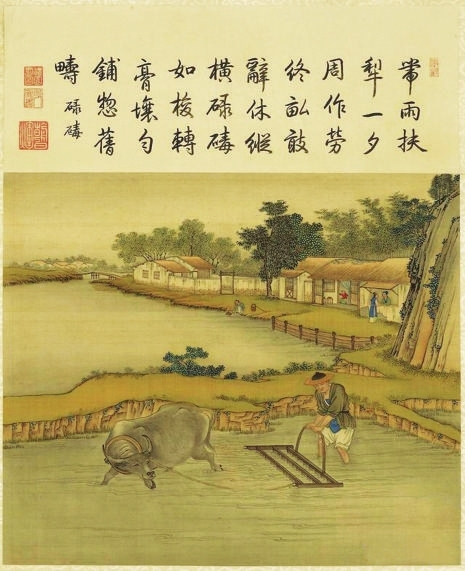 帶雨扶
犁一夕
周作勞
終畝敢
辭休縱
橫碌碡
如梭轉
膏壤勻
鋪惣舊
疇 碌碡